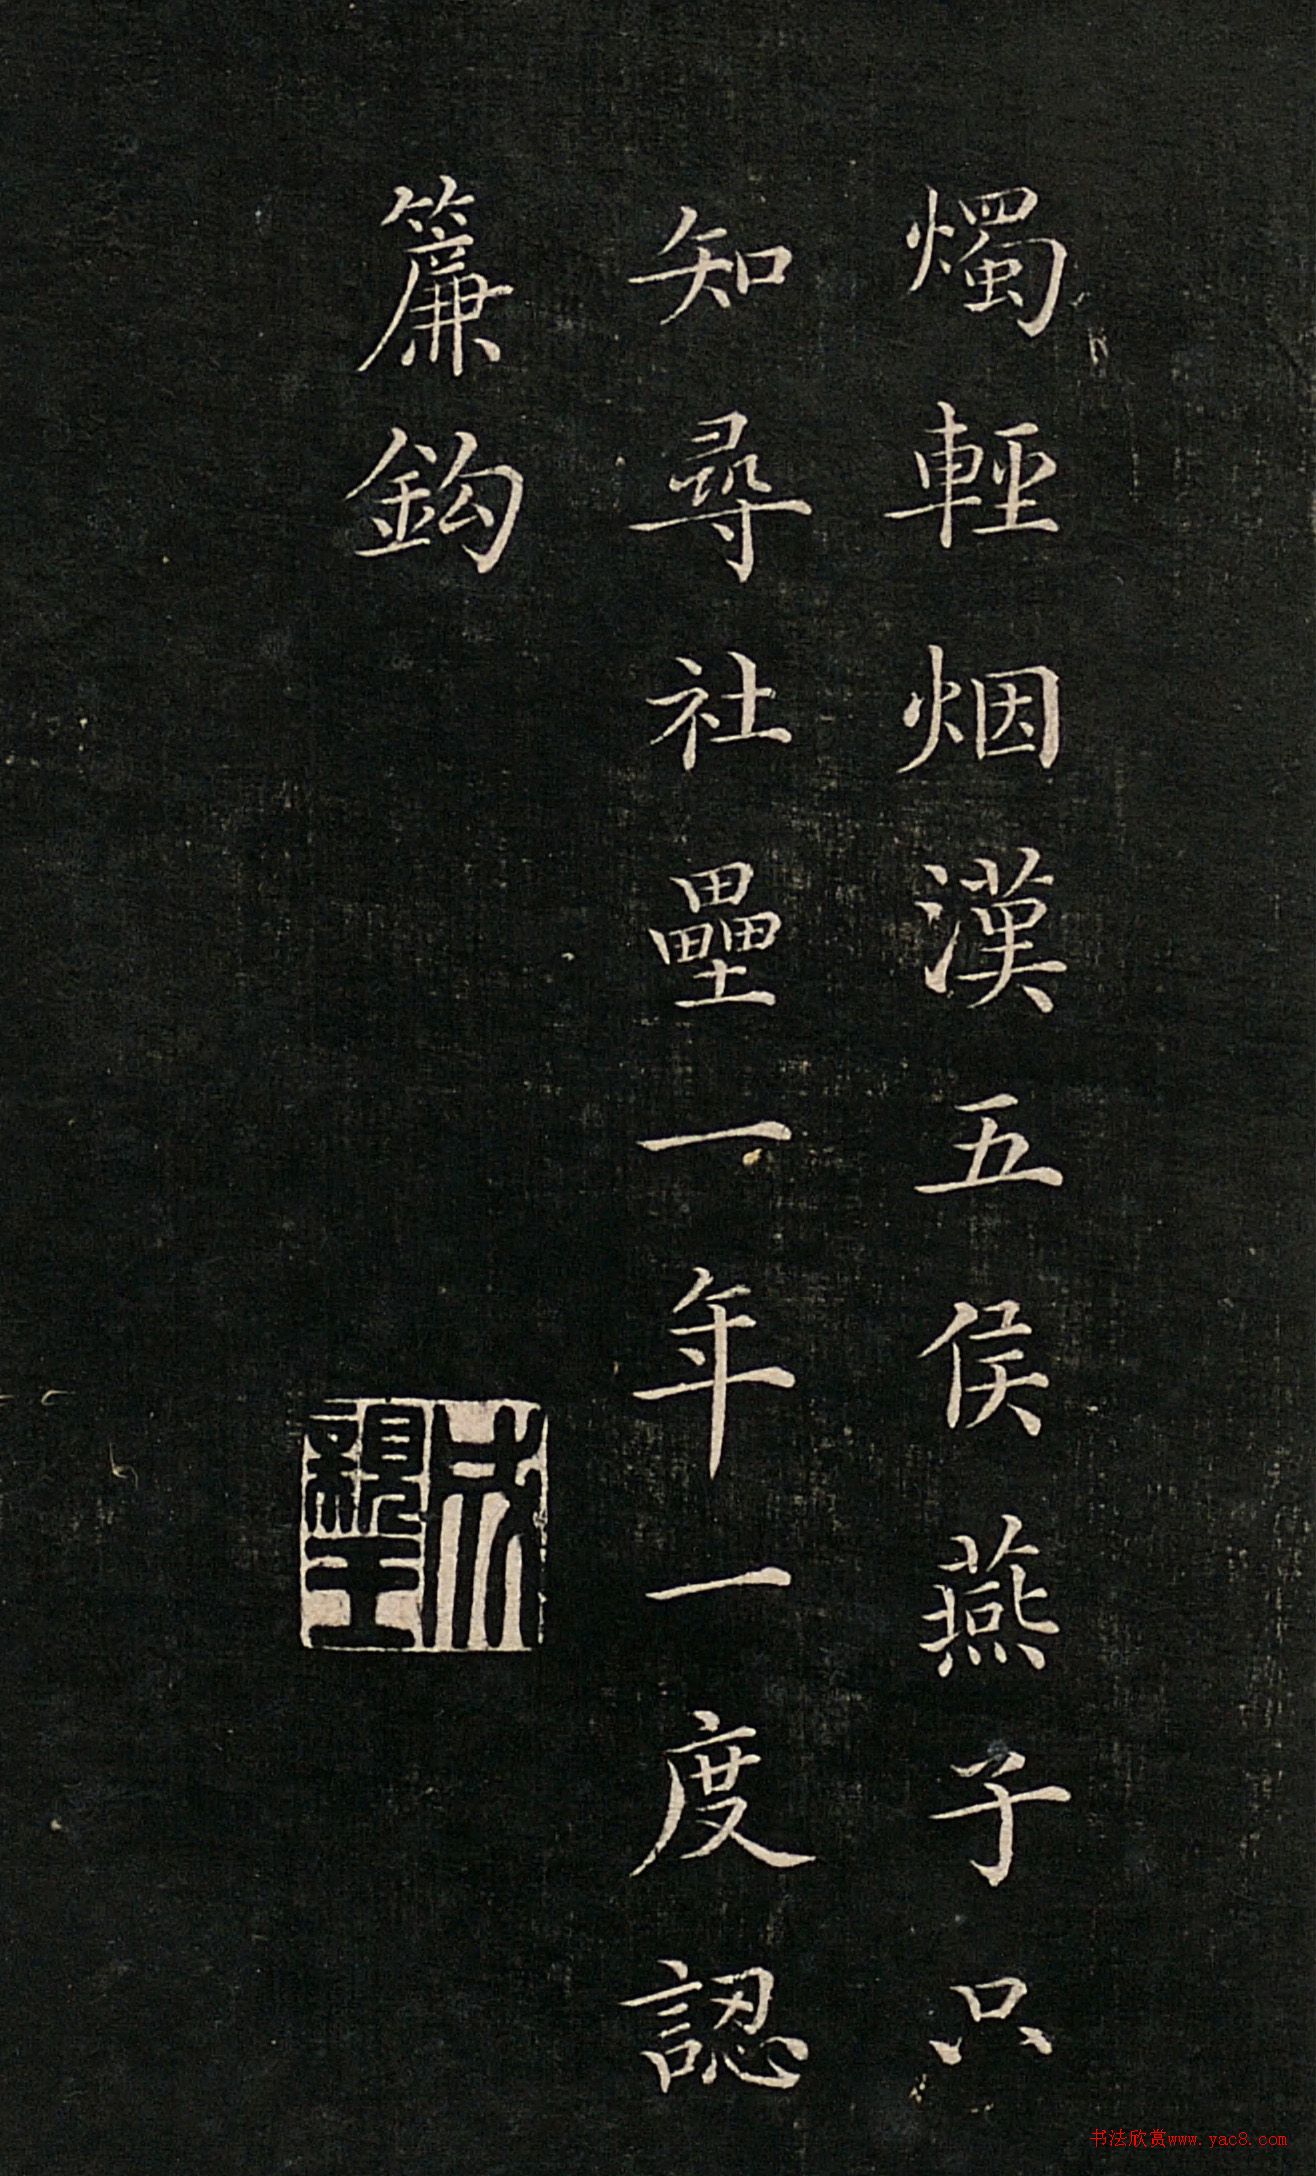 燭輕烟漢五侯燕子只
知尋社壘一年一度認
簾鈎
成親王
书法欣赏www.yac8.com